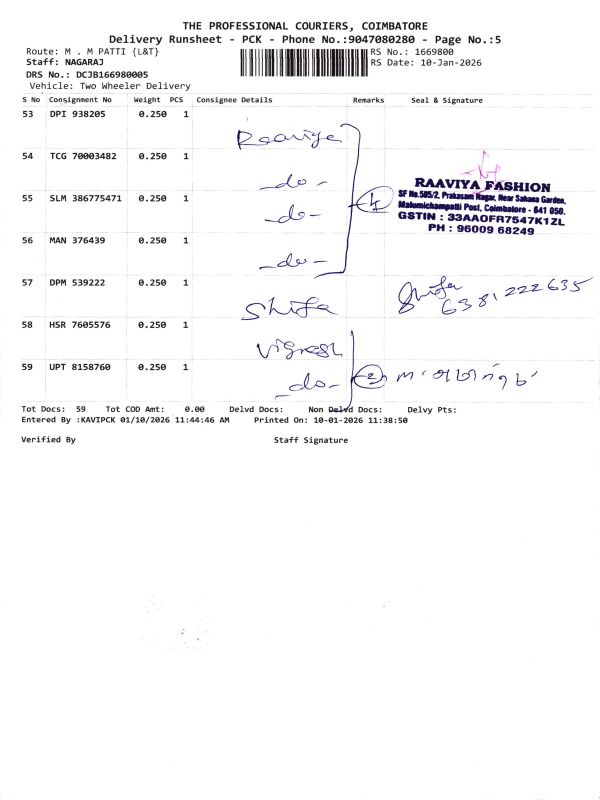 THE PROFESSIONAL COURIERS, COIMBATORE
Delivery Runsheet - PCK - Phone No.:9047080280 - Page No.:5
Route: M . M PATTI {L&T}
RS No.: 1669800
Staff: NAGARAJ
RS Date: 10-Jan-2026
DRS No.: DCJB166980005
Vehicle: Two Wheeler Delivery
S No Consignment No Weight PCS Consignee Details Remarks Seal & Signature
53 DPI 938205 0.250 1 Raaviya
54 TCG 70003482 0.250 1 -do-
55 SLM 386775471 0.250 1 -do- 4
RAAVIYA FASHION
SF No.585/2, Prakasam Nagar, Near Sahana Garden,
Malumichampatti Post, Coimbatore - 641 050.
GSTIN : 33AAOFR7547K1ZL
PH : 96009 68249
56 MAN 376439 0.250 1 -do-
57 DPM 539222 0.250 1 Shifa Shifa
6381222635
58 HSR 7605576 0.250 1 Vignesh
59 UPT 8158760 0.250 1 -do- 2
Tot Docs: 59 Tot COD Amt: 0.00 Delvd Docs: Non Delvd Docs: Delvy Pts:
Entered By :KAVIPCK 01/10/2026 11:44:46 AM Printed On: 10-01-2026 11:38:50
Verified By Staff Signature